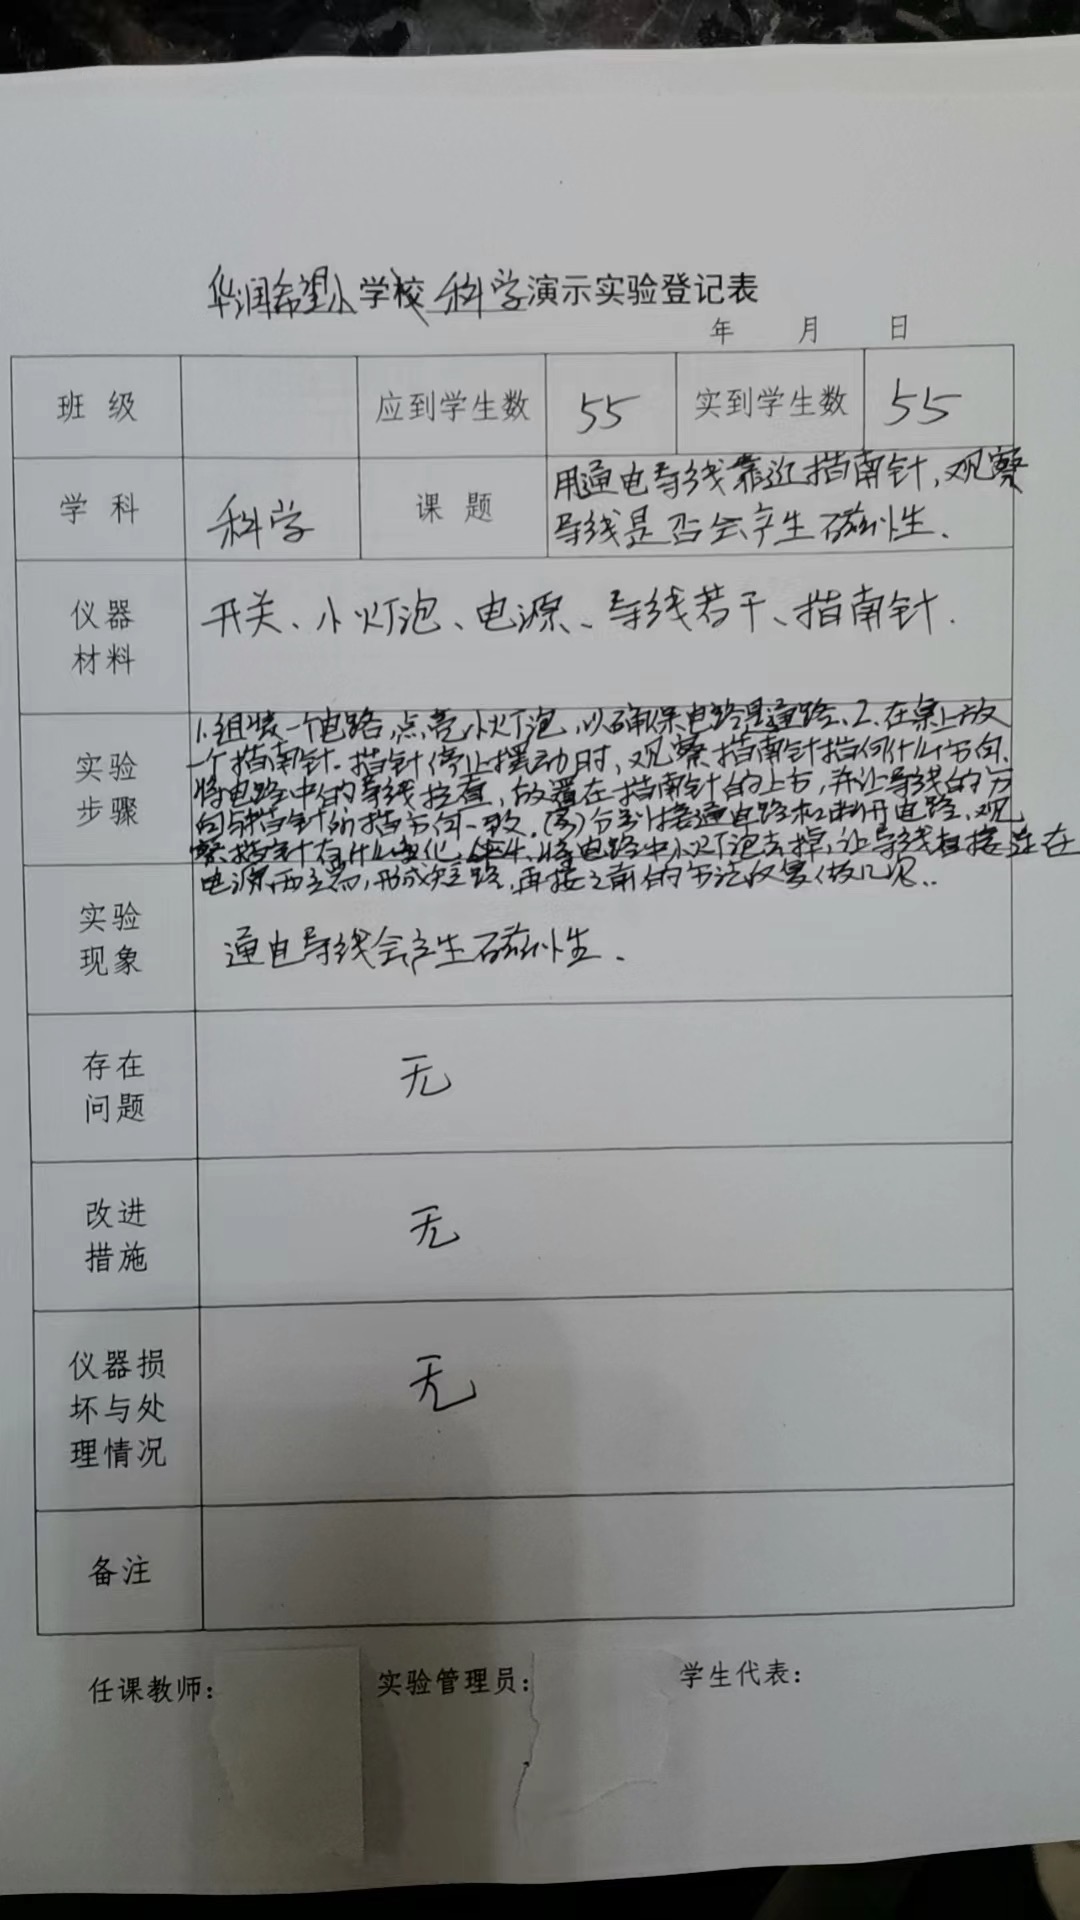 华润希望小学校 科学演示实验登记表
年 月 日
班级 应到学生数 55 实到学生数 55
学科 科学 课题 用通电导线靠近指南针,观察
导线是否会产生磁性.
仪器
材料
开关、小灯泡、电源、导线若干、指南针.
实验
步骤
1.组装一个电路,点亮小灯泡,以确保电路是通路、2.在桌上放
一个指南针.指针停止摆动时,观察指南针指向什么方向.
将电路中的导线拉直,放置在指南针的上方,并让导线的方
向与指针的指方向一致.(3)分别接通电路和断开电路,观
察指针有什么变化.将电路中小灯泡去掉,让导线直接连在
电源两端,形成短路,再按之前的方法反复做几次..
实验
现象
通电导线会产生磁性.
存在
问题
无
改进
措施
无
仪器损
坏与处
理情况
无
备注
任课教师: 实验管理员: 学生代表: